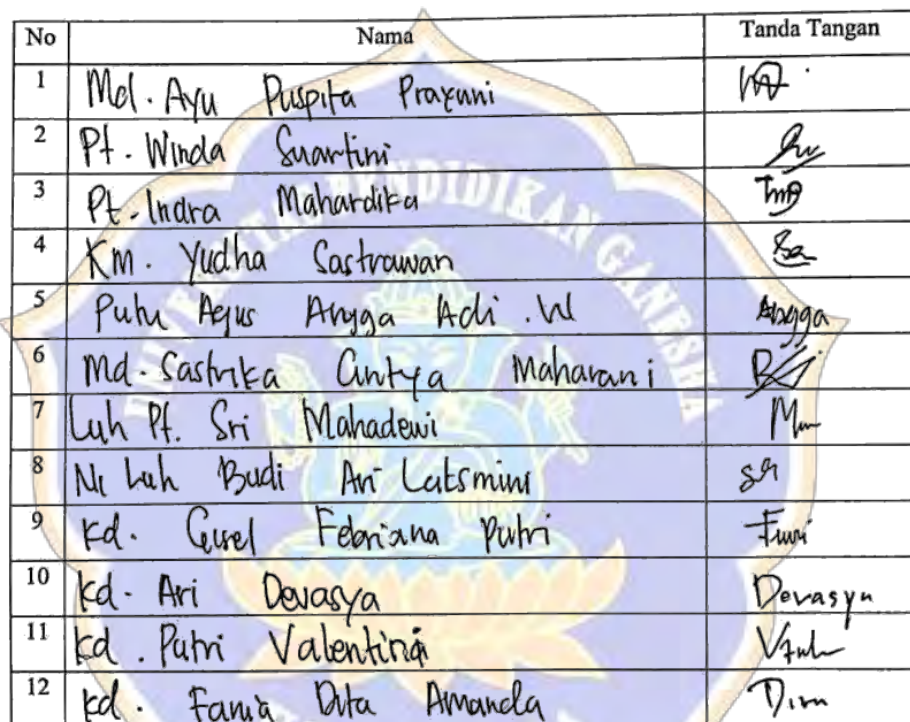 No Nama Tanda Tangan
1 Md. Ayu Puspita Prayuni
2 Pt. Winda Suartini
3 Pt. Indra Mahardika
4 Km. Yudha Sastrawan
5 Putu Agus Angga Adi . W Angga
6 Md. Sastrika Cintya Maharani
7 Luh Pt. Sri Mahadewi
8 Ni Luh Budi Ari Laksmini
9 Kd. Gisel Febriana Putri
10 Kd. Ari Devasya Devasya
11 Kd. Putri Valentina
12 Kd. Fania Dita Amanda
UNIVERSITAS PENDIDIKAN GANESHA